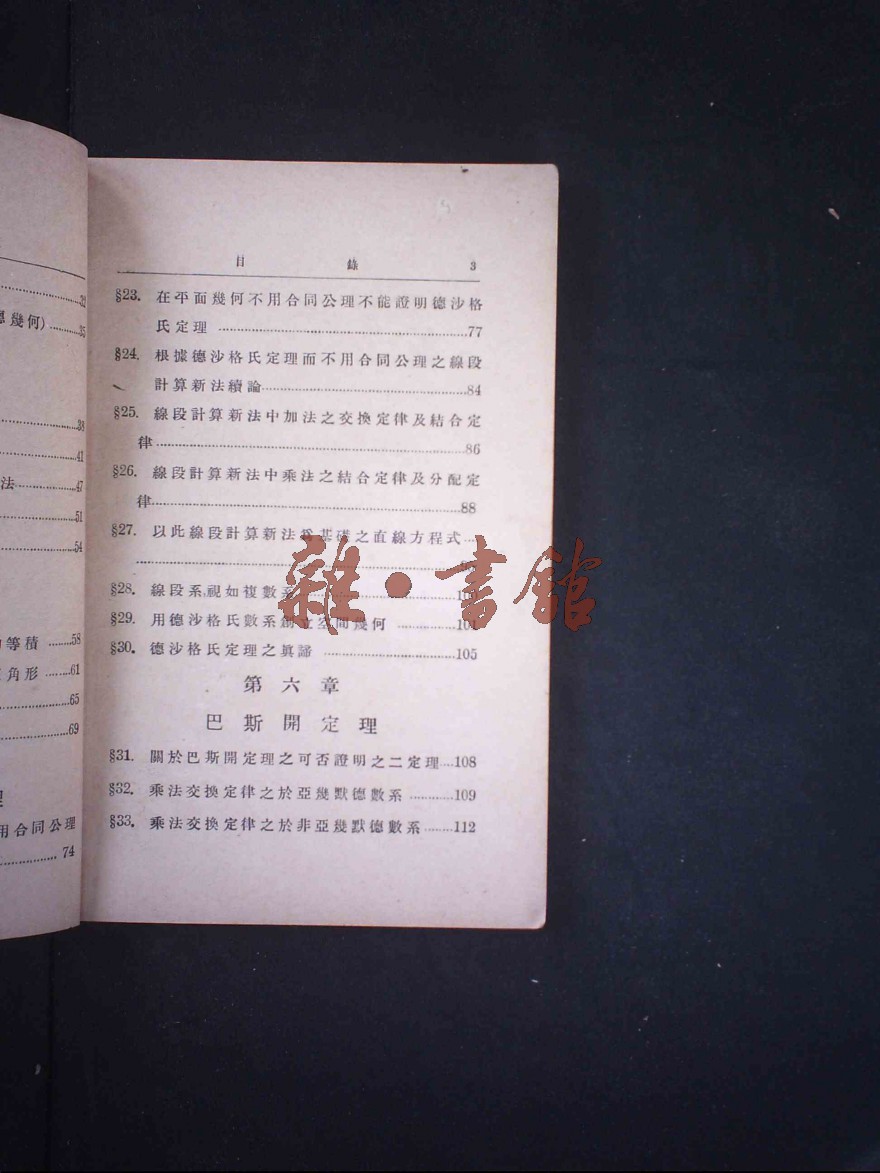 22
幾何)
35
38
41
法 47
51
54
等積 58
角形 61
65
69
用合同公理
74
目 錄 3
§23. 在平面幾何不用合同公理不能證明德沙格
氏定理 77
§24. 根據德沙格氏定理而不用合同公理之線段
計算新法續論 84
§25. 線段計算新法中加法之交換定律及結合定
律 86
§26. 線段計算新法中乘法之結合定律及分配定
律 88
§27. 以此線段計算新法爲基礎之直線方程式
§28. 線段系視如複數系
§29. 用德沙格氏數系創立空間幾何 101
§30. 德沙格氏定理之眞諦 105
第六章
巴斯開定理
§31. 關於巴斯開定理之可否證明之二定理 108
§32. 乘法交換定律之於亞幾默德數系 109
§33. 乘法交換定律之於非亞幾默德數系 112
雜·書館